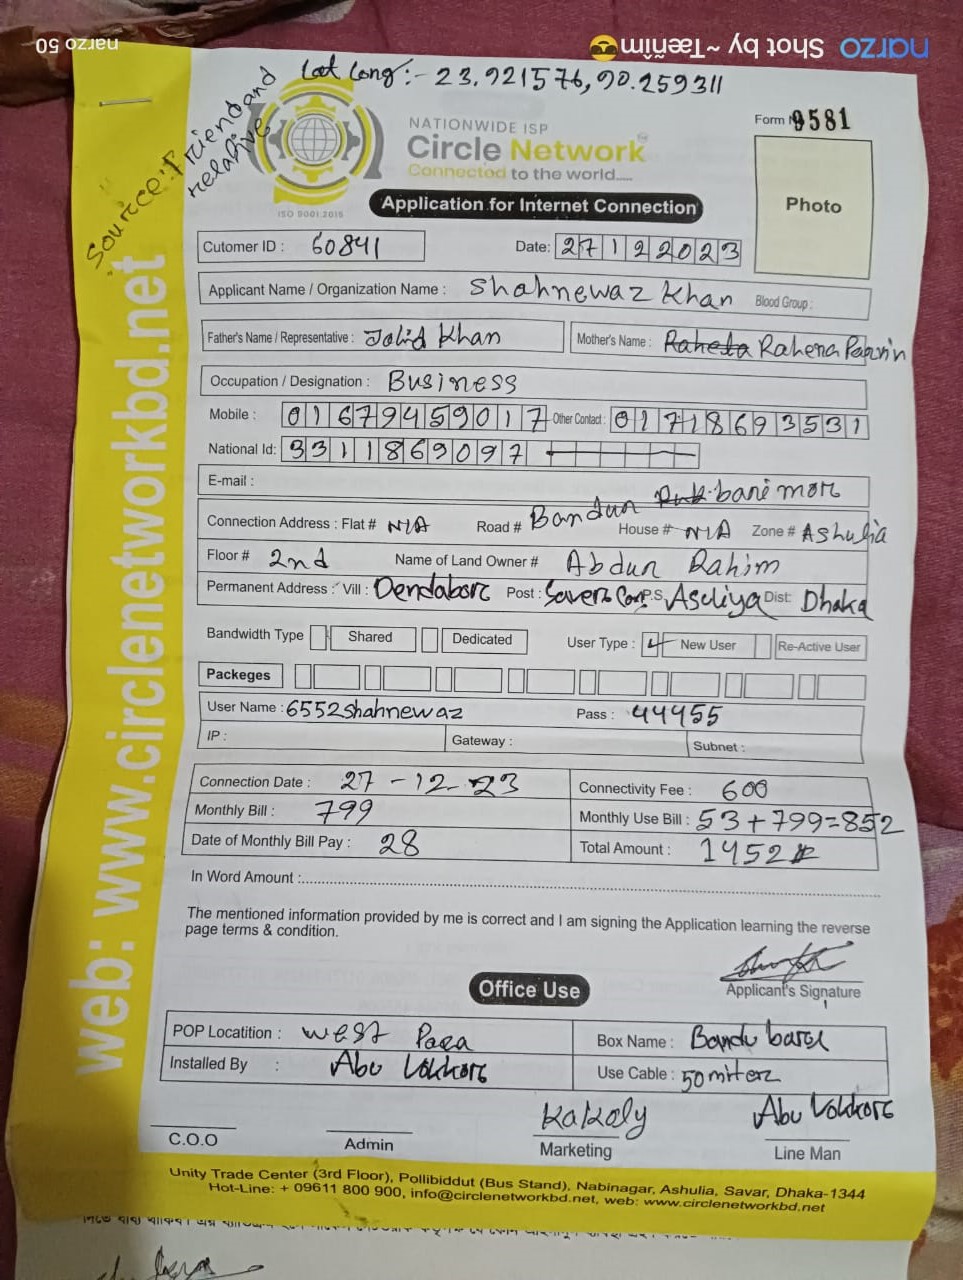 narzo 50
narzo Shot by ~Taeñim~
Lat Long:- 23.921576,90.259311
Source: Friend and relative
Form N 9581
NATIONWIDE ISP
Circle Network
Connected to the world.....
ISO 9001:2015
Photo
Application for Internet Connection
Cutomer ID : 60841 Date: 27122023
Applicant Name / Organization Name : Shahnewaz Khan Blood Group :
Father's Name / Representative : Jalid Khan Mother's Name : Raheta Rahena Parvin
Occupation / Designation : Business
Mobile : 01679459017 Other Contact : 01718693531
National Id: 3311869097
E-mail :
Connection Address : Flat # N/A Road # Bandur bari mor House # N/A Zone # Ashulia
Floor # 2nd Name of Land Owner # Abdur Rahim
Permanent Address : Vill : Dendabor Post : Saver Can P.S. Asuliya Dist: Dhaka
Bandwidth Type Shared Dedicated User Type : New User Re-Active User
Packeges
User Name : 6552shahnewaz Pass : 44455
IP : Gateway : Subnet :
Connection Date : 27-12-23 Connectivity Fee : 600
Monthly Bill : 799 Monthly Use Bill : 53+799=852
Date of Monthly Bill Pay : 28 Total Amount : 1452
In Word Amount :
The mentioned information provided by me is correct and I am signing the Application learning the reverse
page terms & condition.
Applicant's Signature
Office Use
POP Locatition : west Para Box Name : Bandu barel
Installed By : Abu Use Cable : 50 miter
Kakoly Abu
C.O.O Admin Marketing Line Man
Unity Trade Center (3rd Floor), Pollibiddut (Bus Stand), Nabinagar, Ashulia, Savar, Dhaka-1344
Hot-Line: + 09611 800 900, info@circlenetworkbd.net, web: www.circlenetworkbd.net
web: www.circlenetworkbd.net